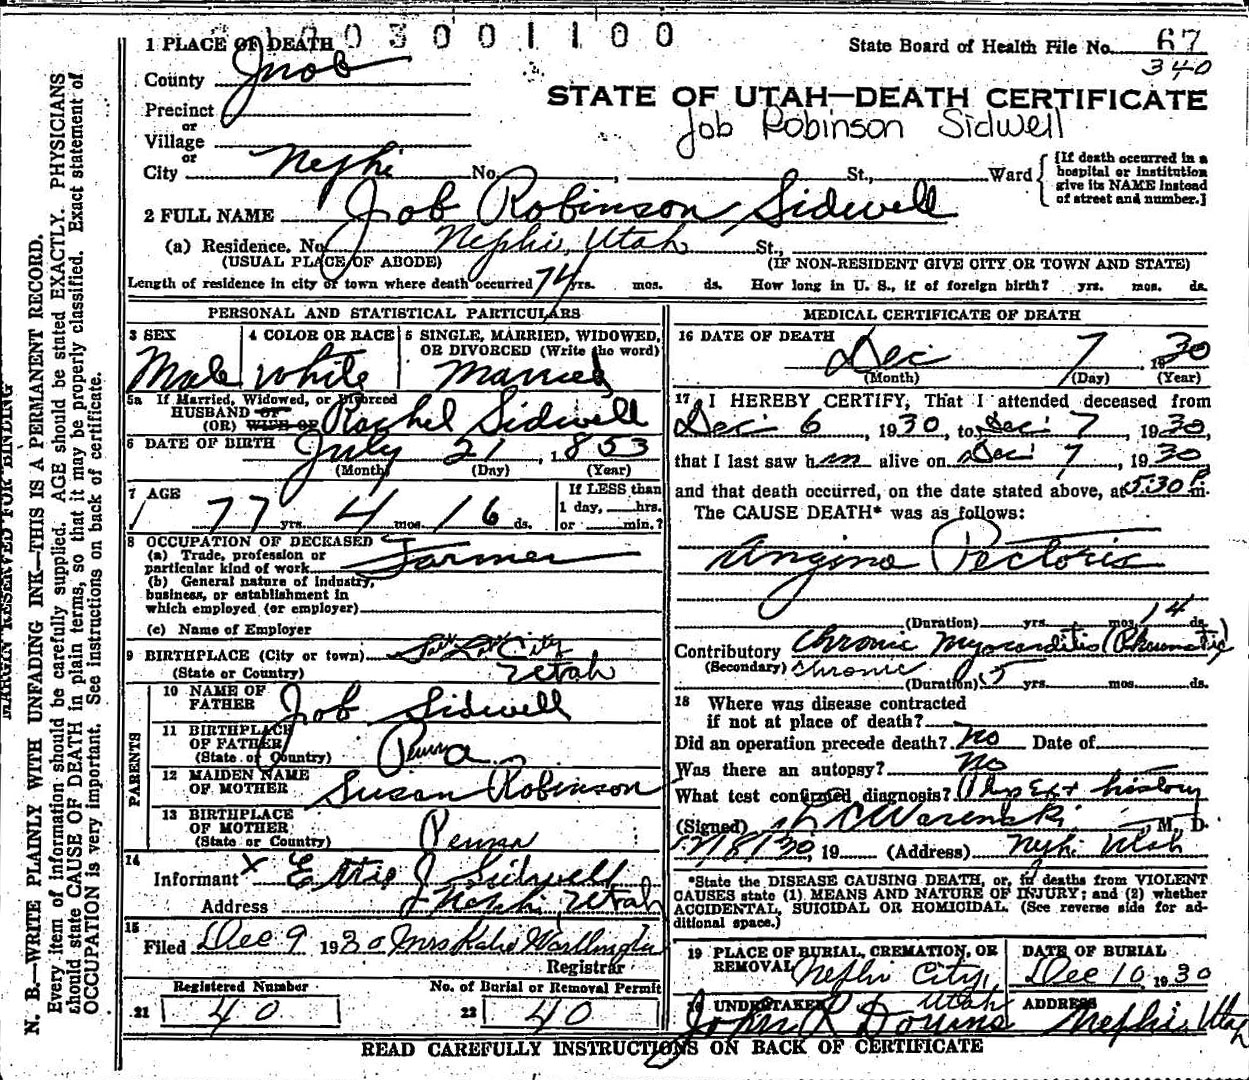 003001100
1 PLACE OF DEATH
State Board of Health File No. 67
340
County Juab
STATE OF UTAH—DEATH CERTIFICATE
Job Robinson Sidwell
Precinct
or
Village
or
City Nephi No. , St., Ward
[If death occurred in a hospital or institution give its NAME instead of street and number.]
2 FULL NAME Job Robinson Sidwell
(a) Residence. No. Nephi, Utah St.,
(USUAL PLACE OF ABODE) (IF NON-RESIDENT GIVE CITY OR TOWN AND STATE)
Length of residence in city or town where death occurred 74 yrs. mos. ds. How long in U. S., if of foreign birth? yrs. mos. ds.
PERSONAL AND STATISTICAL PARTICULARS
3 SEX Male
4 COLOR OR RACE White
5 SINGLE, MARRIED, WIDOWED, OR DIVORCED (Write the word) Married
5a If Married, Widowed, or Divorced
HUSBAND OF
(OR) WIFE OF Rachel Sidwell
6 DATE OF BIRTH July 21, 1853
(Month) (Day) (Year)
7 AGE 77 yrs. 4 mos. 16 ds.
If LESS than 1 day, hrs. or min.?
8 OCCUPATION OF DECEASED
(a) Trade, profession or particular kind of work Farmer
(b) General nature of industry, business, or establishment in which employed (or employer)
(c) Name of Employer
9 BIRTHPLACE (City or town) Salt Lake City
(State or Country) Utah
PARENTS
10 NAME OF FATHER Job Sidwell
11 BIRTHPLACE OF FATHER (State or Country) Penna
12 MAIDEN NAME OF MOTHER Susan Robinson
13 BIRTHPLACE OF MOTHER (State or Country) Penna
14 Informant x Ettie J Sidwell
Address Nephi Utah
15 Filed Dec 9 1930 Mrs Katie
Registrar
Registered Number
21 40
No. of Burial or Removal Permit
22 40
MEDICAL CERTIFICATE OF DEATH
16 DATE OF DEATH Dec 7, 1930
(Month) (Day) (Year)
17 I HEREBY CERTIFY, That I attended deceased from
Dec 6, 1930, to Dec 7, 1930,
that I last saw him alive on Dec 7, 1930
and that death occurred, on the date stated above, at 5:30 P. m.
The CAUSE DEATH* was as follows:
Angina Pectoris
(Duration) yrs. mos. 14 ds.
Contributory Chronic Myocarditis (Rheumatic)
(Secondary) Chronic
(Duration) 15 yrs. mos. ds.
18 Where was disease contracted
if not at place of death?
Did an operation precede death? No Date of
Was there an autopsy? No
What test confirmed diagnosis? Phys Ex + history
(Signed) M. D.
12/8/30, 19 (Address) Nephi Utah
*State the DISEASE CAUSING DEATH, or, in deaths from VIOLENT
CAUSES state (1) MEANS AND NATURE OF INJURY; and (2) whether
ACCIDENTAL, SUICIDAL OR HOMICIDAL. (See reverse side for ad-
ditional space.)
19 PLACE OF BURIAL, CREMATION, OR REMOVAL Nephi City, Utah
DATE OF BURIAL Dec 10, 1930
UNDERTAKER John
ADDRESS Nephi, Utah
READ CAREFULLY INSTRUCTIONS ON BACK OF CERTIFICATE
MARGIN RESERVED FOR BINDING
N. B.—WRITE PLAINLY WITH UNFADING INK—THIS IS A PERMANENT RECORD.
Every item of information should be carefully supplied. AGE should be stated EXACTLY. PHYSICIANS
should state CAUSE OF DEATH in plain terms, so that it may be properly classified. Exact statement of
OCCUPATION is very important. See instructions on back of certificate.